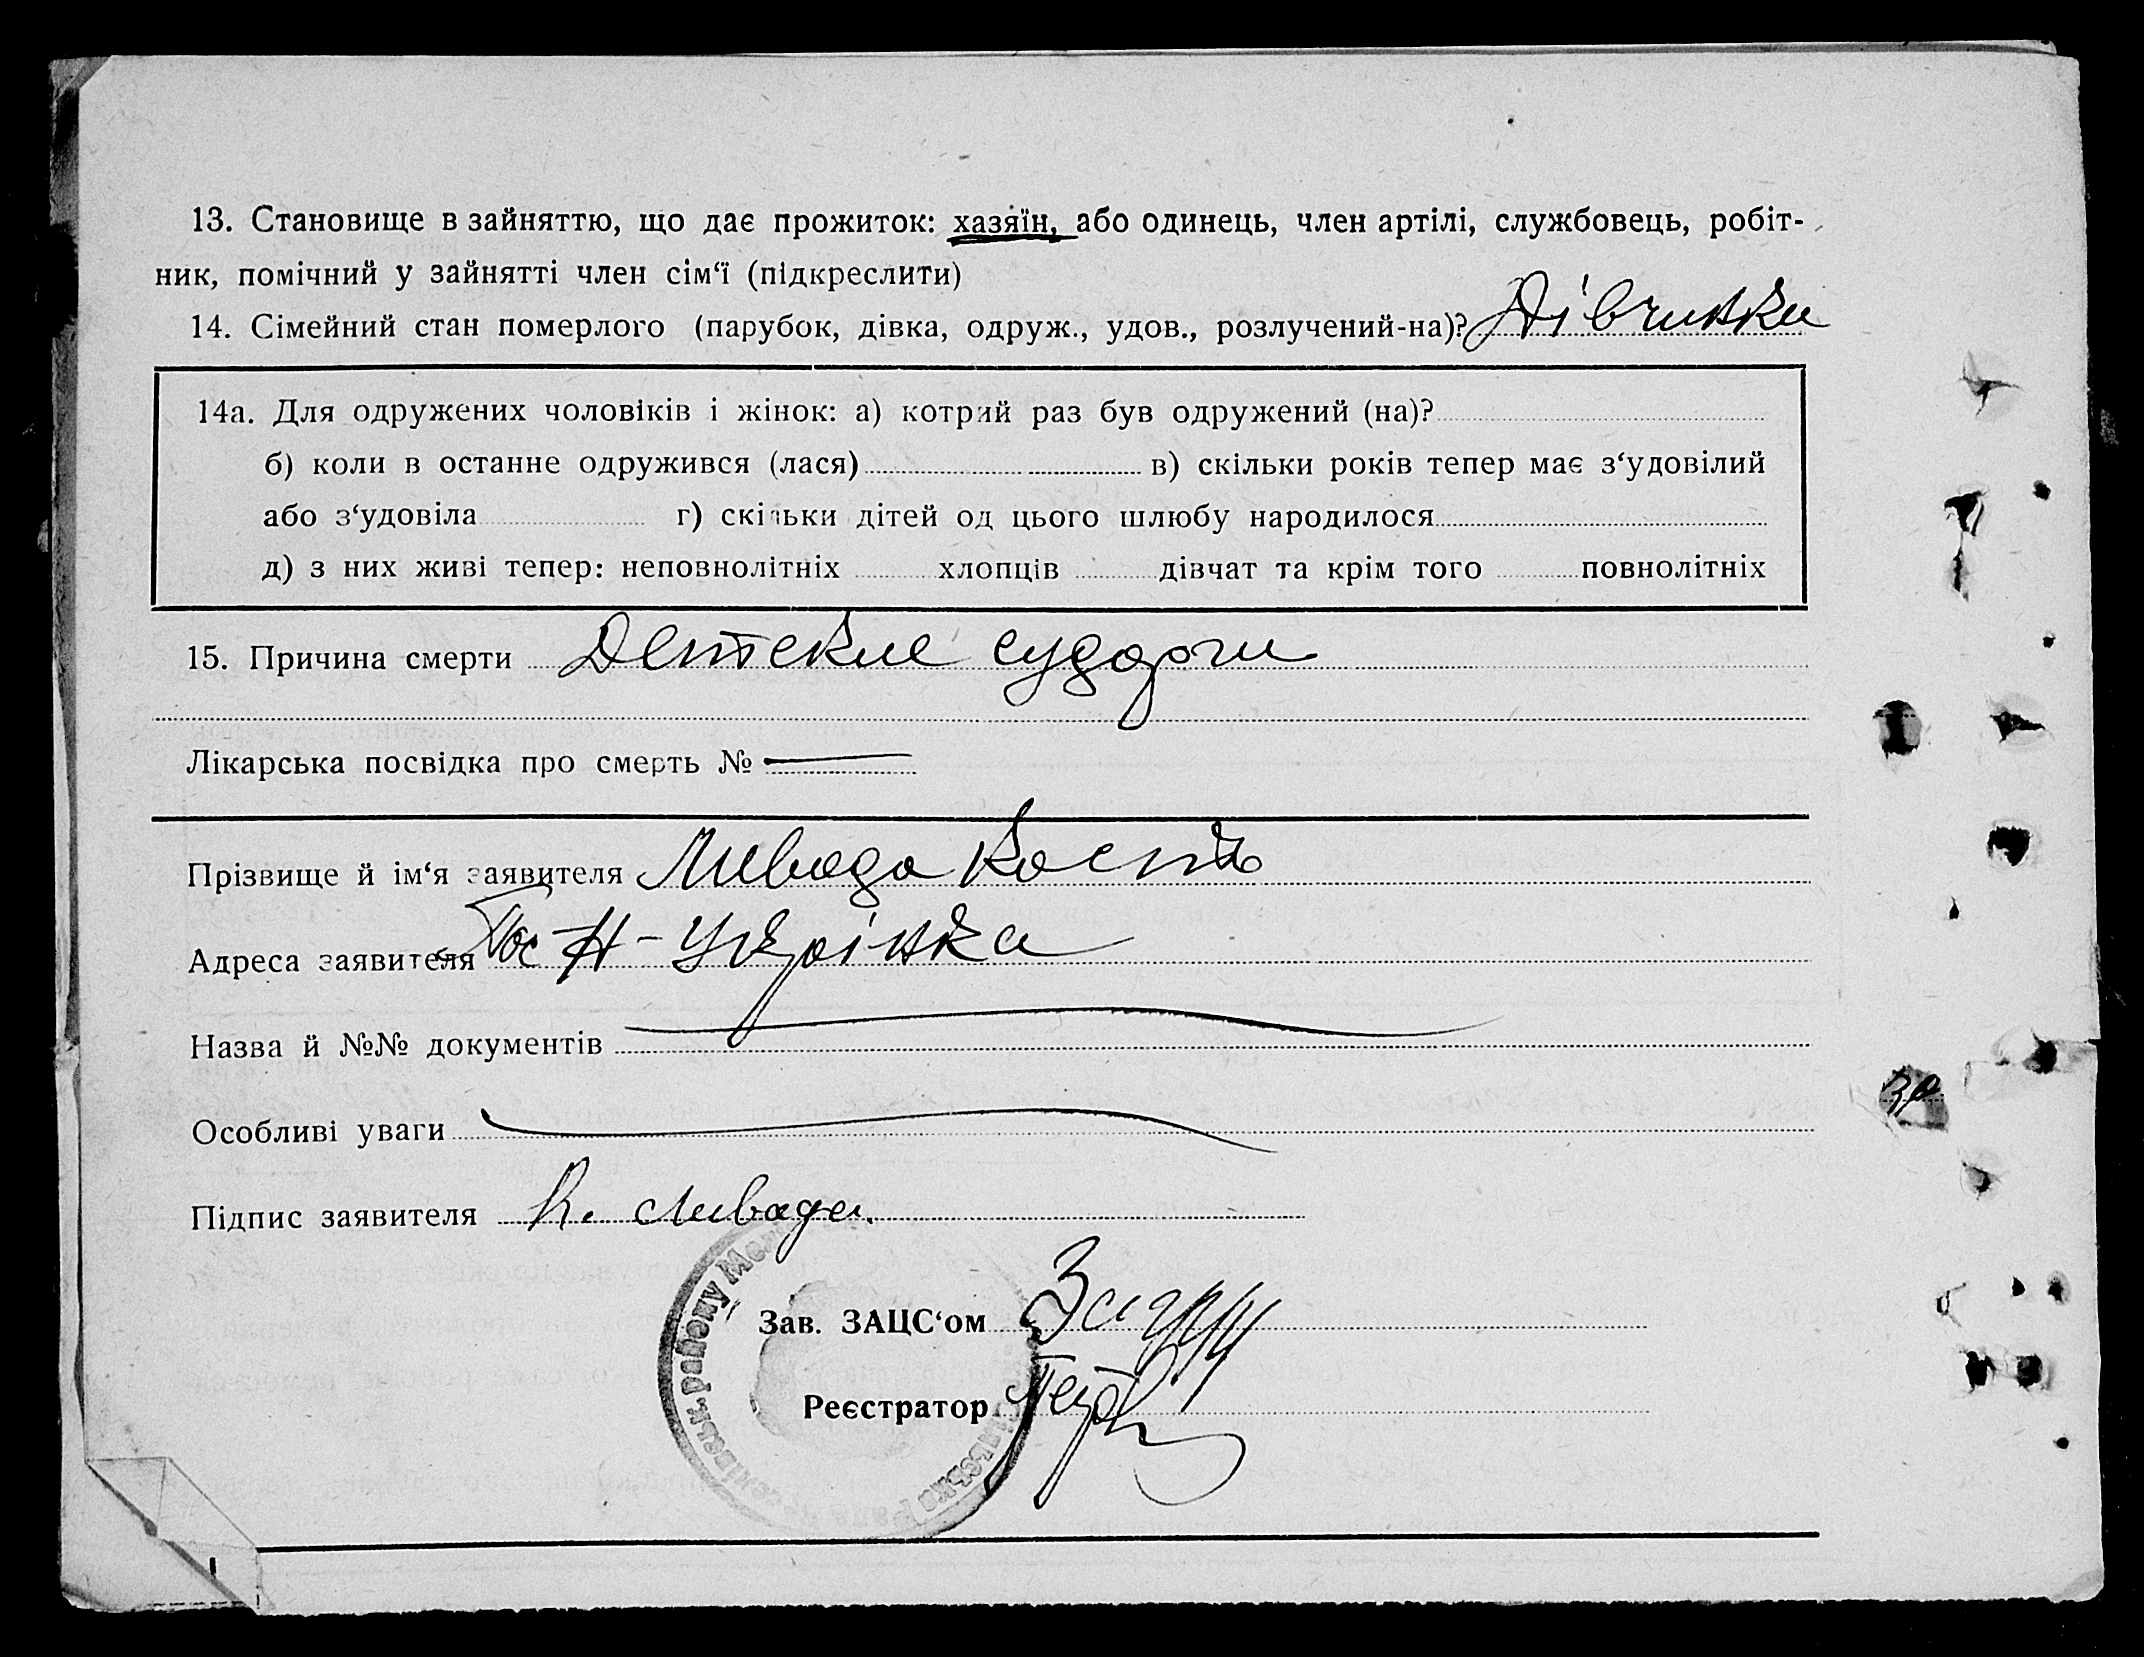 13. Становище в зайняттю, що дає прожиток: хазяїн, або одинець, член артілі, службовець, робіт-
ник, помічний у зайнятті член сім‘ї (підкреслити)
14. Сімейний стан померлого (парубок, дівка, одруж., удов., розлучений-на)? Дівчинка
14а. Для одружених чоловіків і жінок: а) котрий раз був одружений (на)?
б) коли в останнє одружився (лася) в) скільки років тепер має з‘удовілий
або з‘удовіла г) скільки дітей од цього шлюбу народилося
д) з них живі тепер: неповнолітніх хлопців дівчат та крім того повнолітніх
15. Причина смерти Детские судорги
Лікарська посвідка про смерть № —
Прізвище й ім‘я заявителя Ливада Кость
Адреса заявителя Пос Н-Украінка
Назва й №№ документів
Особливі уваги
Підпис заявителя К. Ливада.
Зав. ЗАЦС‘ом
Реєстратор
району